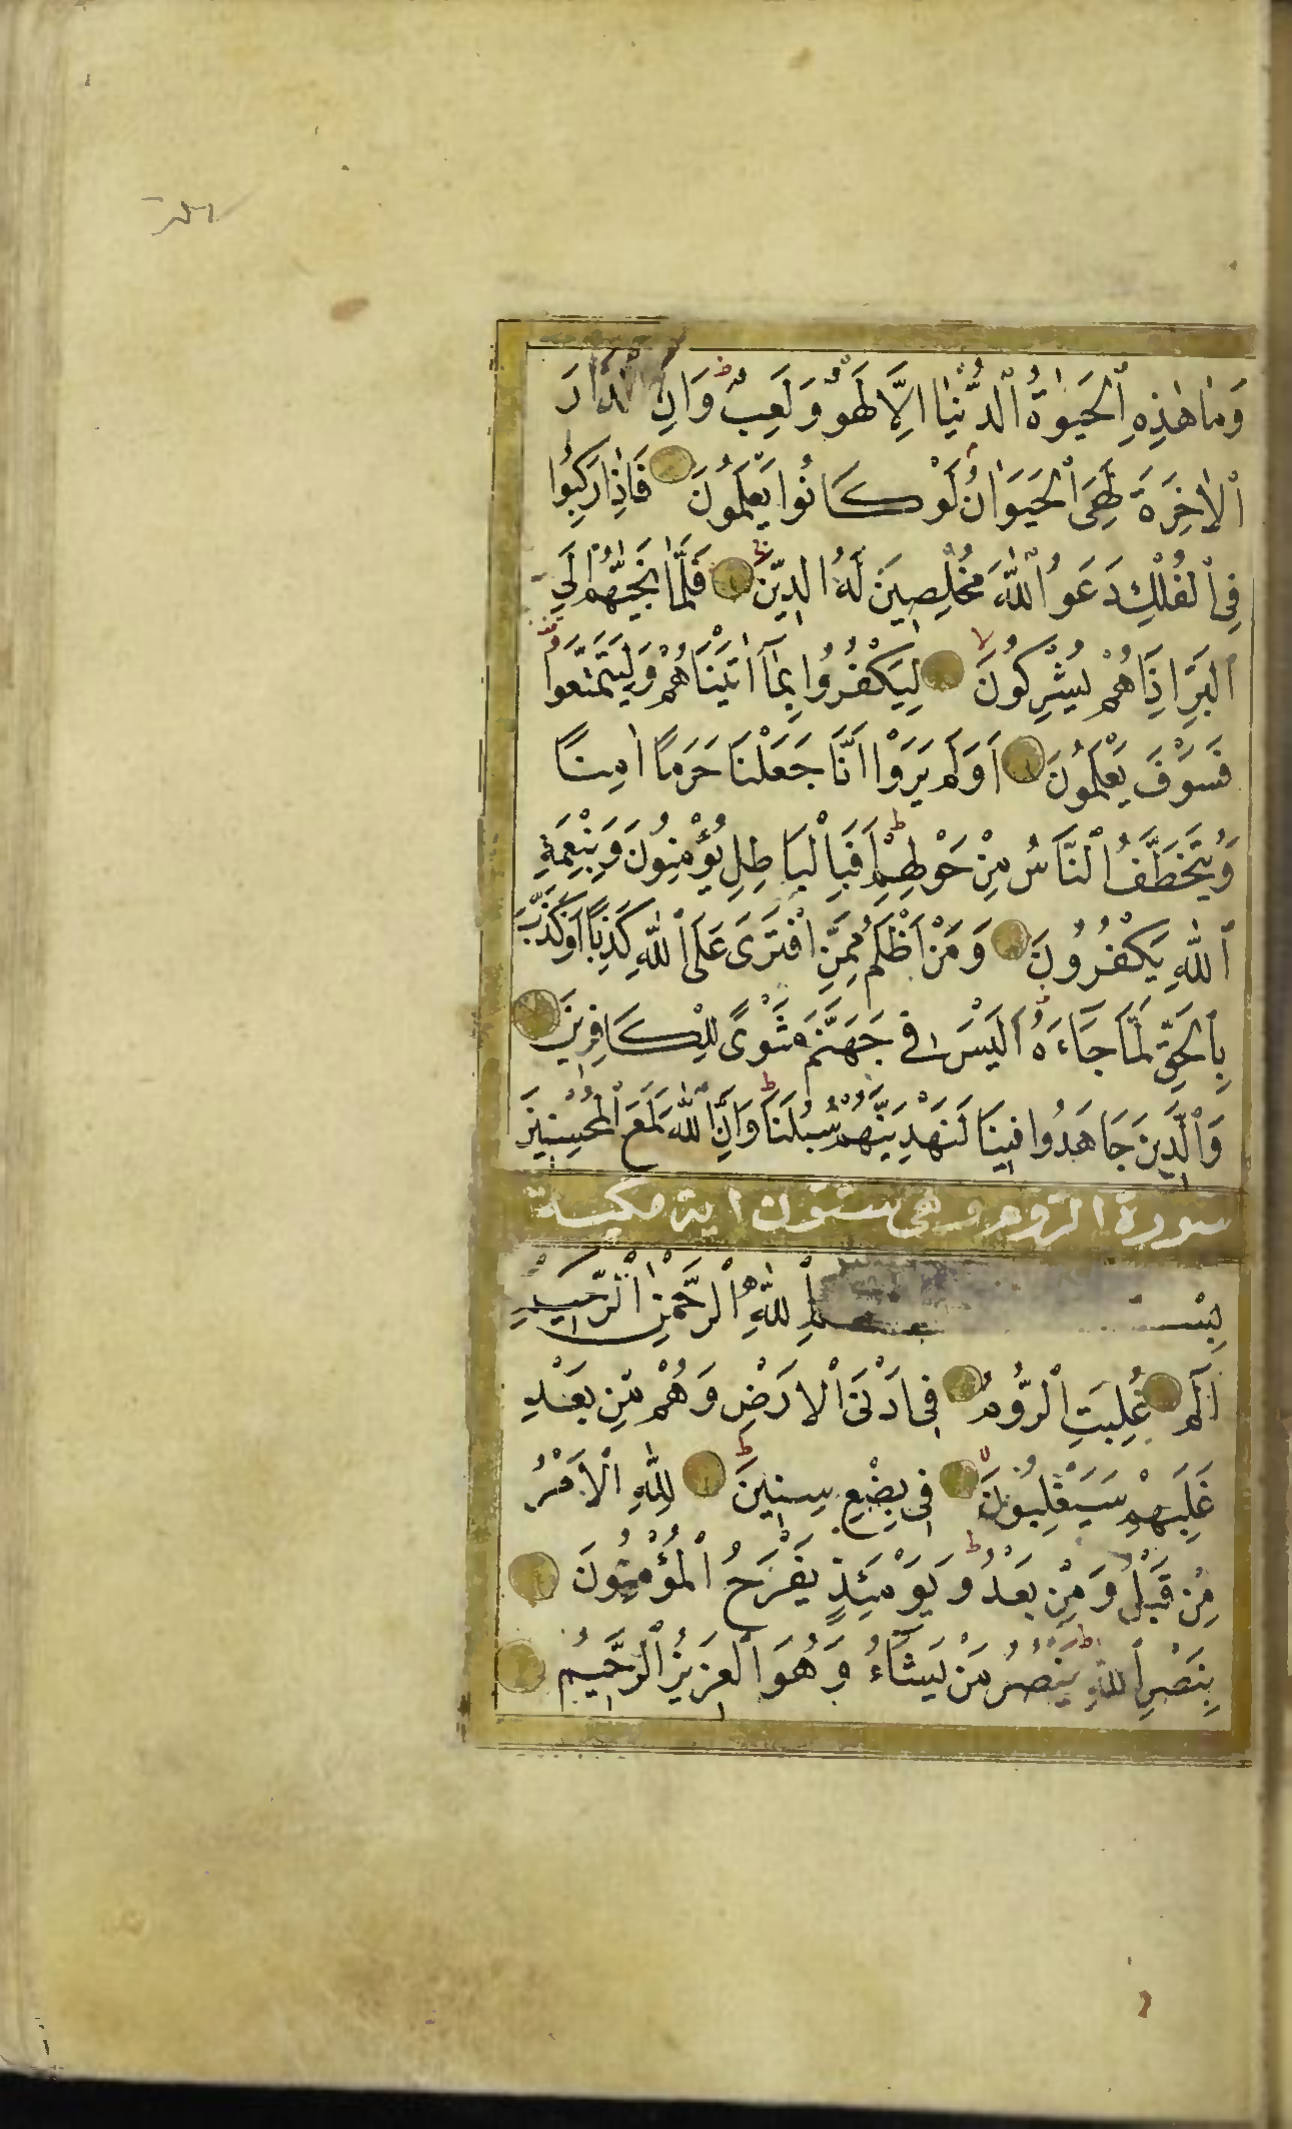 وَمَا هٰذِهِ ٱلْحَيٰوةُ ٱلدُّنْيَا اِلَّا لَهْوٌ وَلَعِبٌ ط وَاِنَّ ٱلدَّارَ
ٱلْاٰخِرَةَ لَهِىَ ٱلْحَيَوَانُ لَوْ كَانُوا يَعْلَمُونَ فَاِذَا رَكِبُوا
فِى ٱلْفُلْكِ دَعَوُ ٱللّٰهَ مُخْلِصِينَ لَهُ الدِّينَ فَلَمَّا نَجّٰيهُمْ اِلَى
ٱلْبَرِّ اِذَا هُمْ يُشْرِكُونَ لا لِيَكْفُرُوا بِمَآ اٰتَيْنَاهُمْ وَلِيَتَمَتَّعُوا
فَسَوْفَ يَعْلَمُونَ اَوَلَمْ يَرَوْا اَنَّا جَعَلْنَا حَرَمًا اٰمِنًا
وَيُتَخَطَّفُ ٱلنَّاسُ مِنْ حَوْلِهِمْ ط اَفَبِالْبَاطِلِ يُؤْمِنُونَ وَبِنِعْمَةِ
ٱللّٰهِ يَكْفُرُونَ وَمَنْ اَظْلَمُ مِمَّنِ افْتَرَىٰ عَلَى ٱللّٰهِ كَذِبًا اَوْ كَذَّبَ
بِٱلْحَقِّ لَمَّا جَاءَهُ اَلَيْسَ فِى جَهَنَّمَ مَثْوًى لِلْكَافِرِينَ
وَٱلَّذِينَ جَاهَدُوا فِينَا لَنَهْدِيَنَّهُمْ سُبُلَنَا ط وَاِنَّ ٱللّٰهَ لَمَعَ ٱلْمُحْسِنِينَ
سورة الروم وهى ستون اية مكية
بِسْمِ ٱللّٰهِ ٱلرَّحْمٰنِ ٱلرَّحِيمِ
الٓمٓ غُلِبَتِ ٱلرُّومُ فِى اَدْنَى ٱلْاَرْضِ وَهُمْ مِنْ بَعْدِ
غَلَبِهِمْ سَيَغْلِبُونَ لا فِى بِضْعِ سِنِينَ ط لِلّٰهِ ٱلْاَمْرُ
مِنْ قَبْلُ وَمِنْ بَعْدُ ط وَيَوْمَئِذٍ يَفْرَحُ ٱلْمُؤْمِنُونَ
بِنَصْرِ ٱللّٰهِ ط يَنْصُرُ مَنْ يَشَآءُ وَهُوَ ٱلْعَزِيزُ ٱلرَّحِيمُ